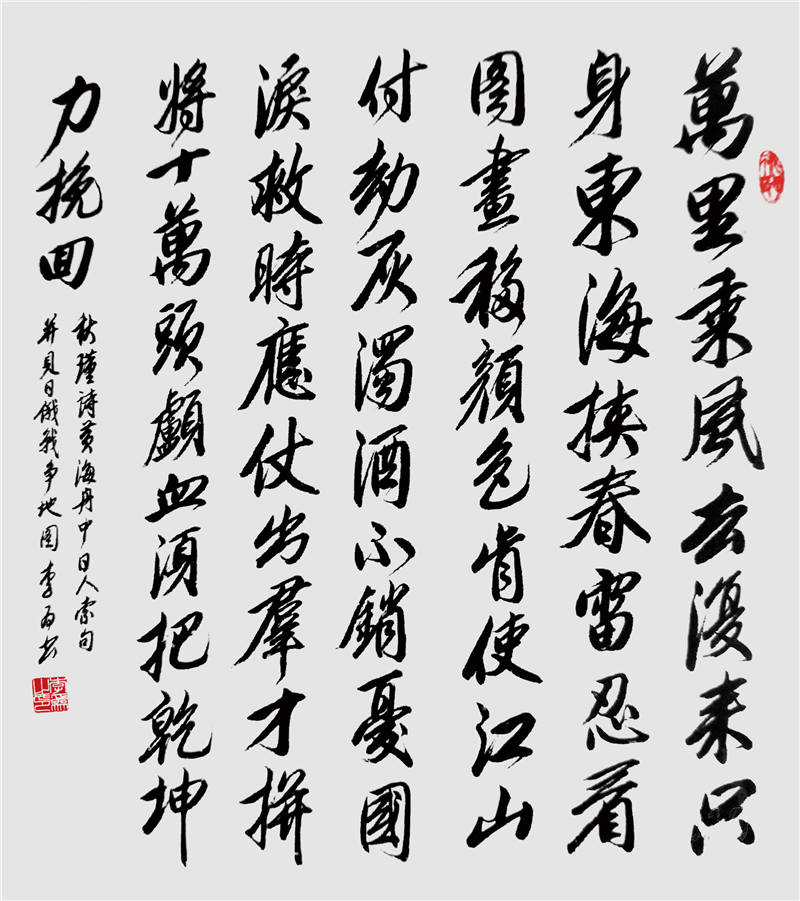 萬里乘風去復来只
身東海挾春雷忍看
圖畫移顔色肯使江山
付劫灰濁酒不銷憂國
淚救時應仗出羣才拼
將十萬頭顱血須把乾坤
力挽回
秋瑾詩黄海舟中日人索句
并見日俄戰争地圖 李 书